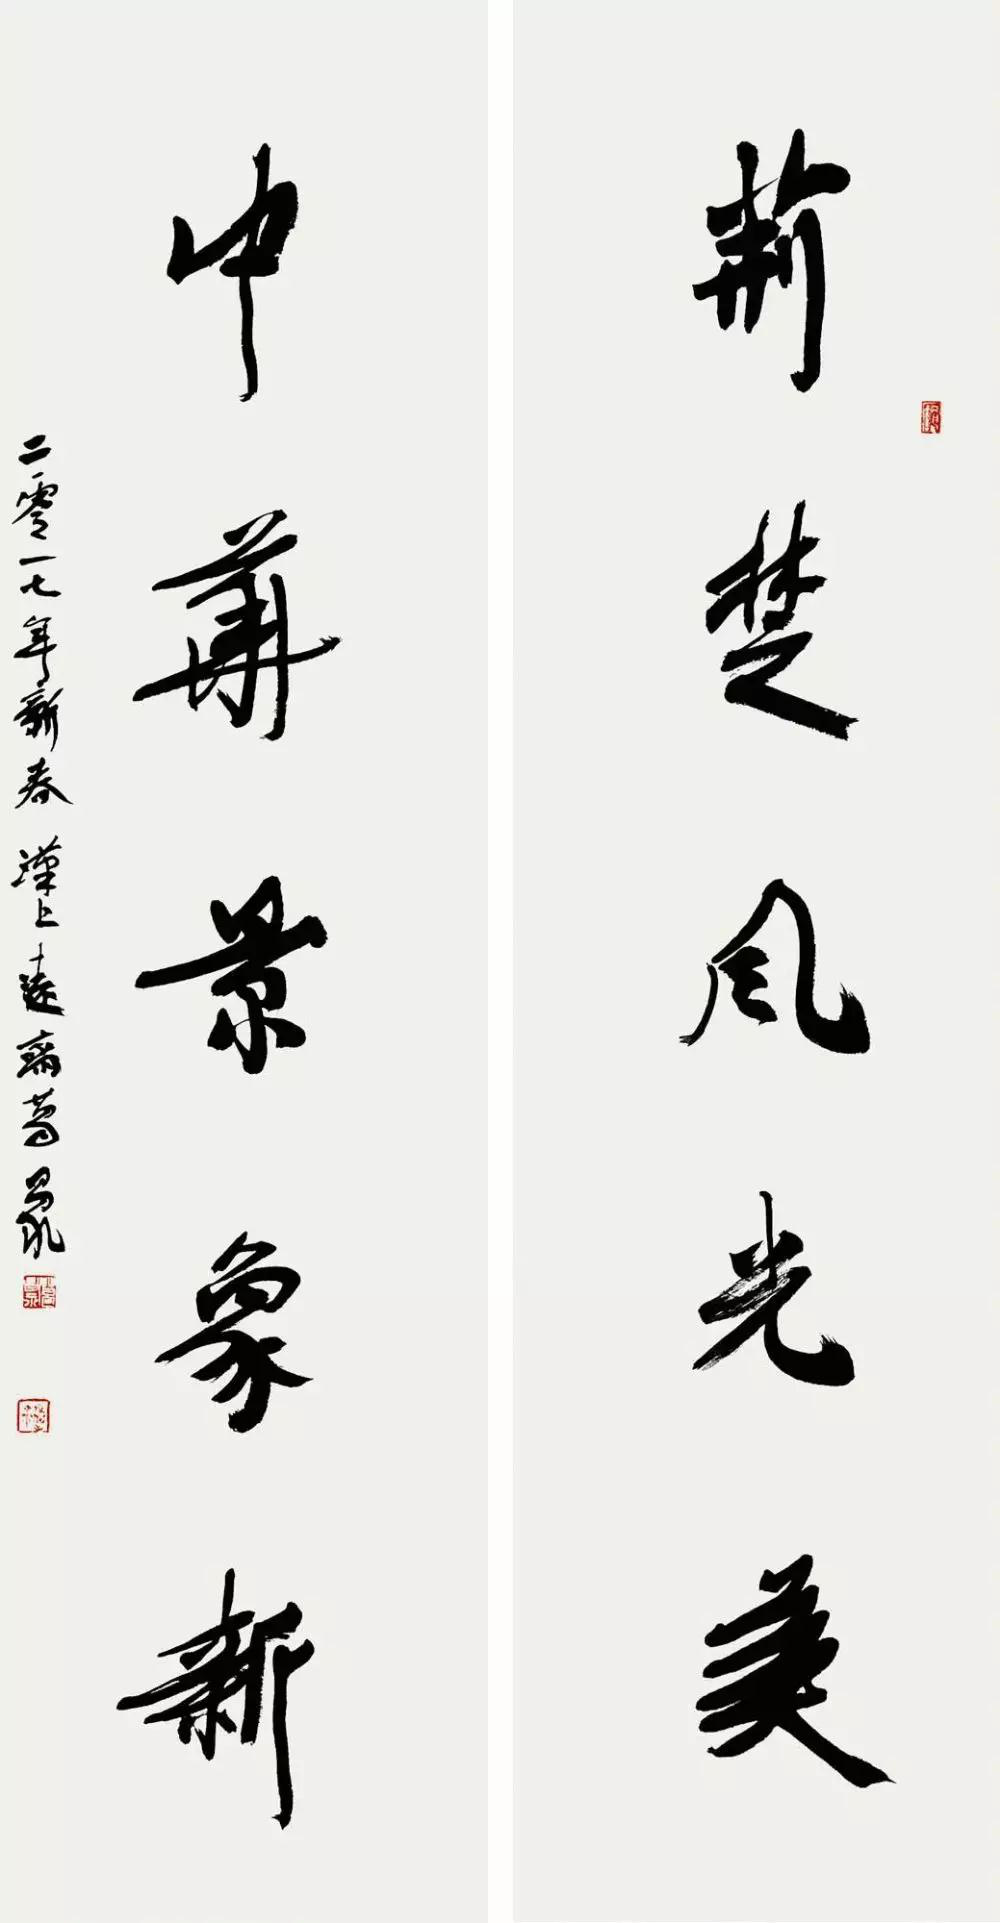 荆楚风光美
中华景象新
二零一七年新春 汉上远斋葛昌永